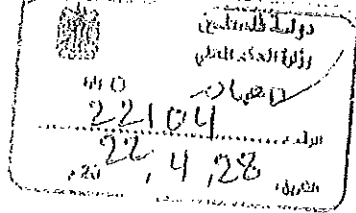 دولة فلسطين
وزارة الحكم المحلي
22104
الرقم:
22, 4, 28
التاريخ: 20 م